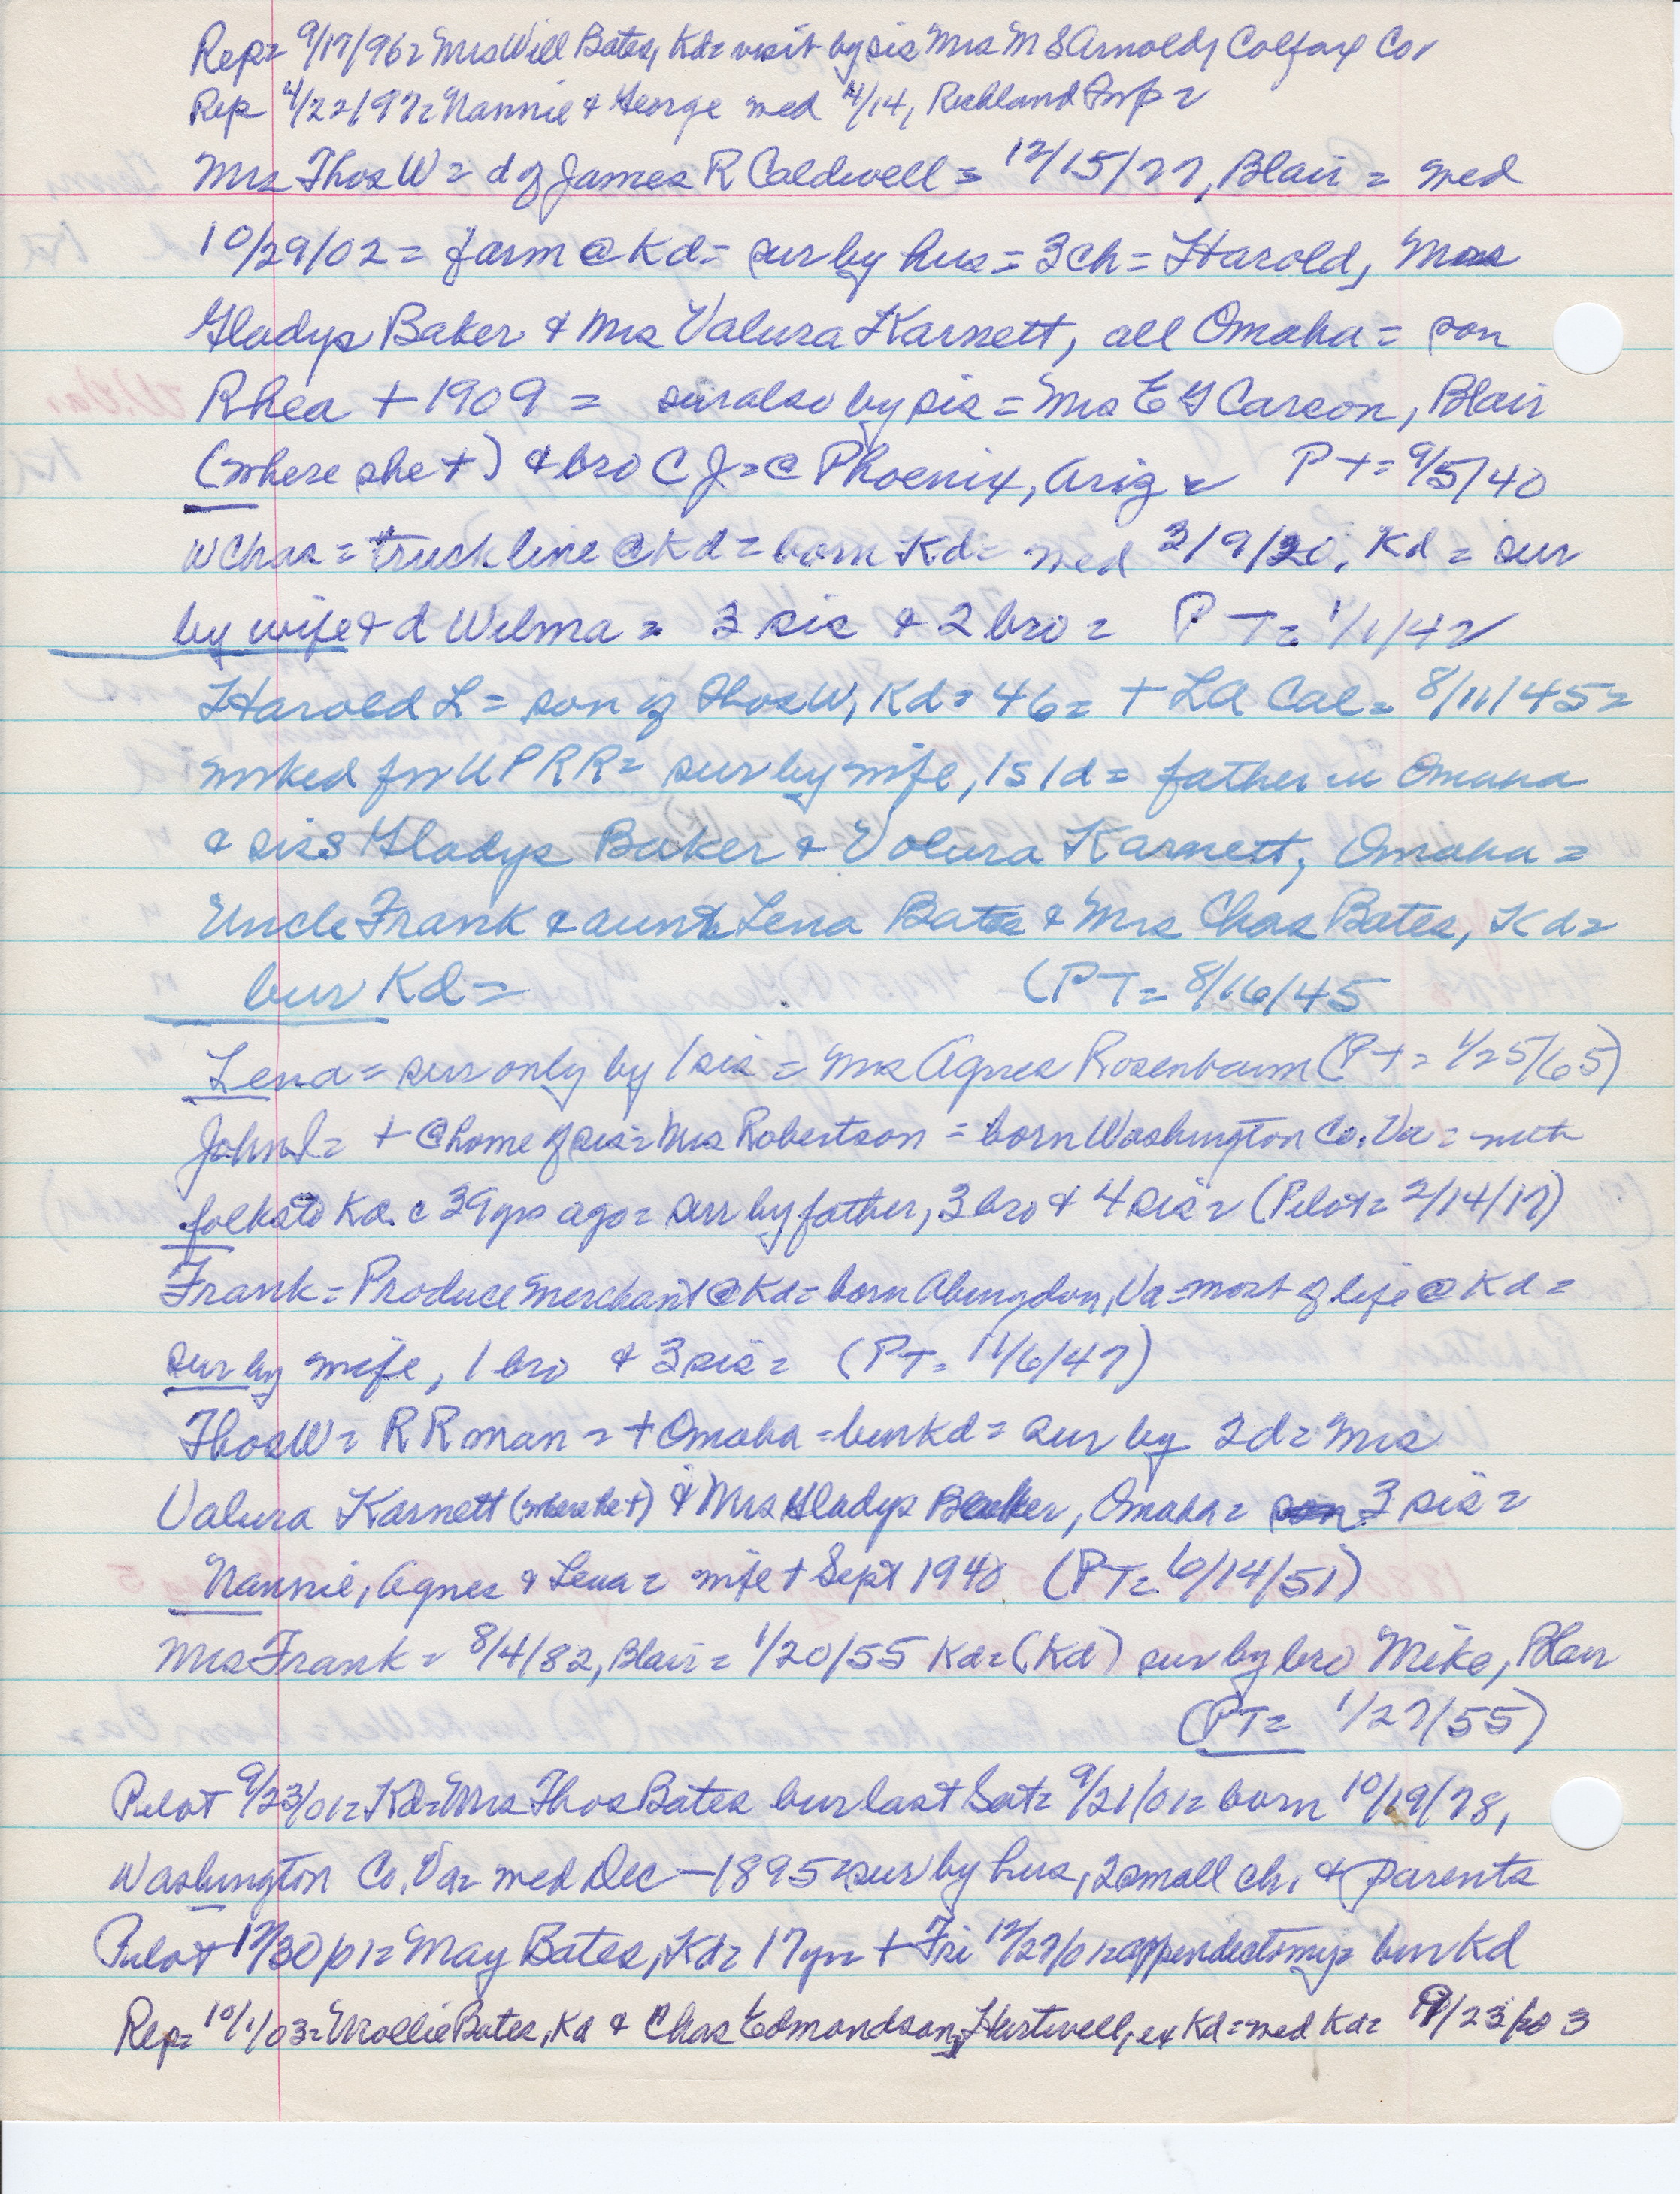 Rep= 9/17/96= Mrs Will Bates, Kd= visit by sis Mrs M S Arnold, Colfax Co,
Rep 4/22/97= Nannie & George med 4/14, Richland Twp =
Mrs Thos W = d of James R Caldwell = 12/15/77, Blair = med
10/29/02 = farm @ Kd = sur by hus = 3 ch = Harold, Mrs
Gladys Baker & Mrs Valura Karnett, all Omaha = son
Rhea + 1909 = sur also by sis = Mrs E G Carson, Blair
(where she +) & bro C J = @ Phoenix, Ariz = P T = 9/5/40
W Chas = truck line @ Kd = born Kd = med 3/9/20, Kd = sur
by wife & d Wilma = 3 sis & 2 bro = P T = 1/1/42
Harold L = son of Thos W, Kd = 46 = + LA Cal = 8/11/45 =
worked for U P R R = sur by wife, 1 s 1 d = father in Omaha
& sis s Gladys Baker & Volura Karnett, Omaha =
Uncle Frank & aunt Lena Bates & Mrs Chas Bates, Kd =
bur Kd = (P T = 8/16/45
Lena = sur only by 1 sis = Mrs Agnes Rosenbaum (P T = 1/25/65)
John I = + @ home of sis = Mrs Robertson = born Washington Co. Va = with
folks to Kd. c 39 yrs ago = sur by father, 3 bro & 4 sis = (Pilot = 2/14/17)
Frank = Produce merchant @ Kd = born Abingdon, Va = most of life @ Kd =
sur by wife, 1 bro & 3 sis = (P T = 11/6/47)
Thos W = R R man = + Omaha = bur Kd = sur by 2 d = Mrs
Valura Karnett (where he +) & Mrs Gladys Baker, Omaha = 3 sis =
Nannie, Agnes & Lena = wife + Sept 1940 (P T = 6/14/51)
Mrs Frank = 8/4/82, Blair = 1/20/55 Kd = (Kd) sur by bro Mike, Blair
(P T = 1/27/55)
Pilot 9/23/01 = Kd = Mrs Thos Bates bur last Sat = 9/21/01 = born 10/19/78,
Washington Co, Va = med Dec - 1895 = sur by hus, 2 small ch, & parents
Pilot 12/30/01 = May Bates, Kd = 17 yr = + Fri 12/27/01 = appendectomy = bur Kd
Rep = 10/1/03 = Mollie Bates, Kd & Chas Edmondson, Hartwell, ex Kd = med Kd = 9/23/03